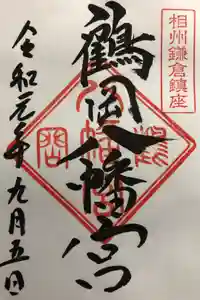 相州鎌倉鎮座
鶴岡八幡宮
令和元年九月五日